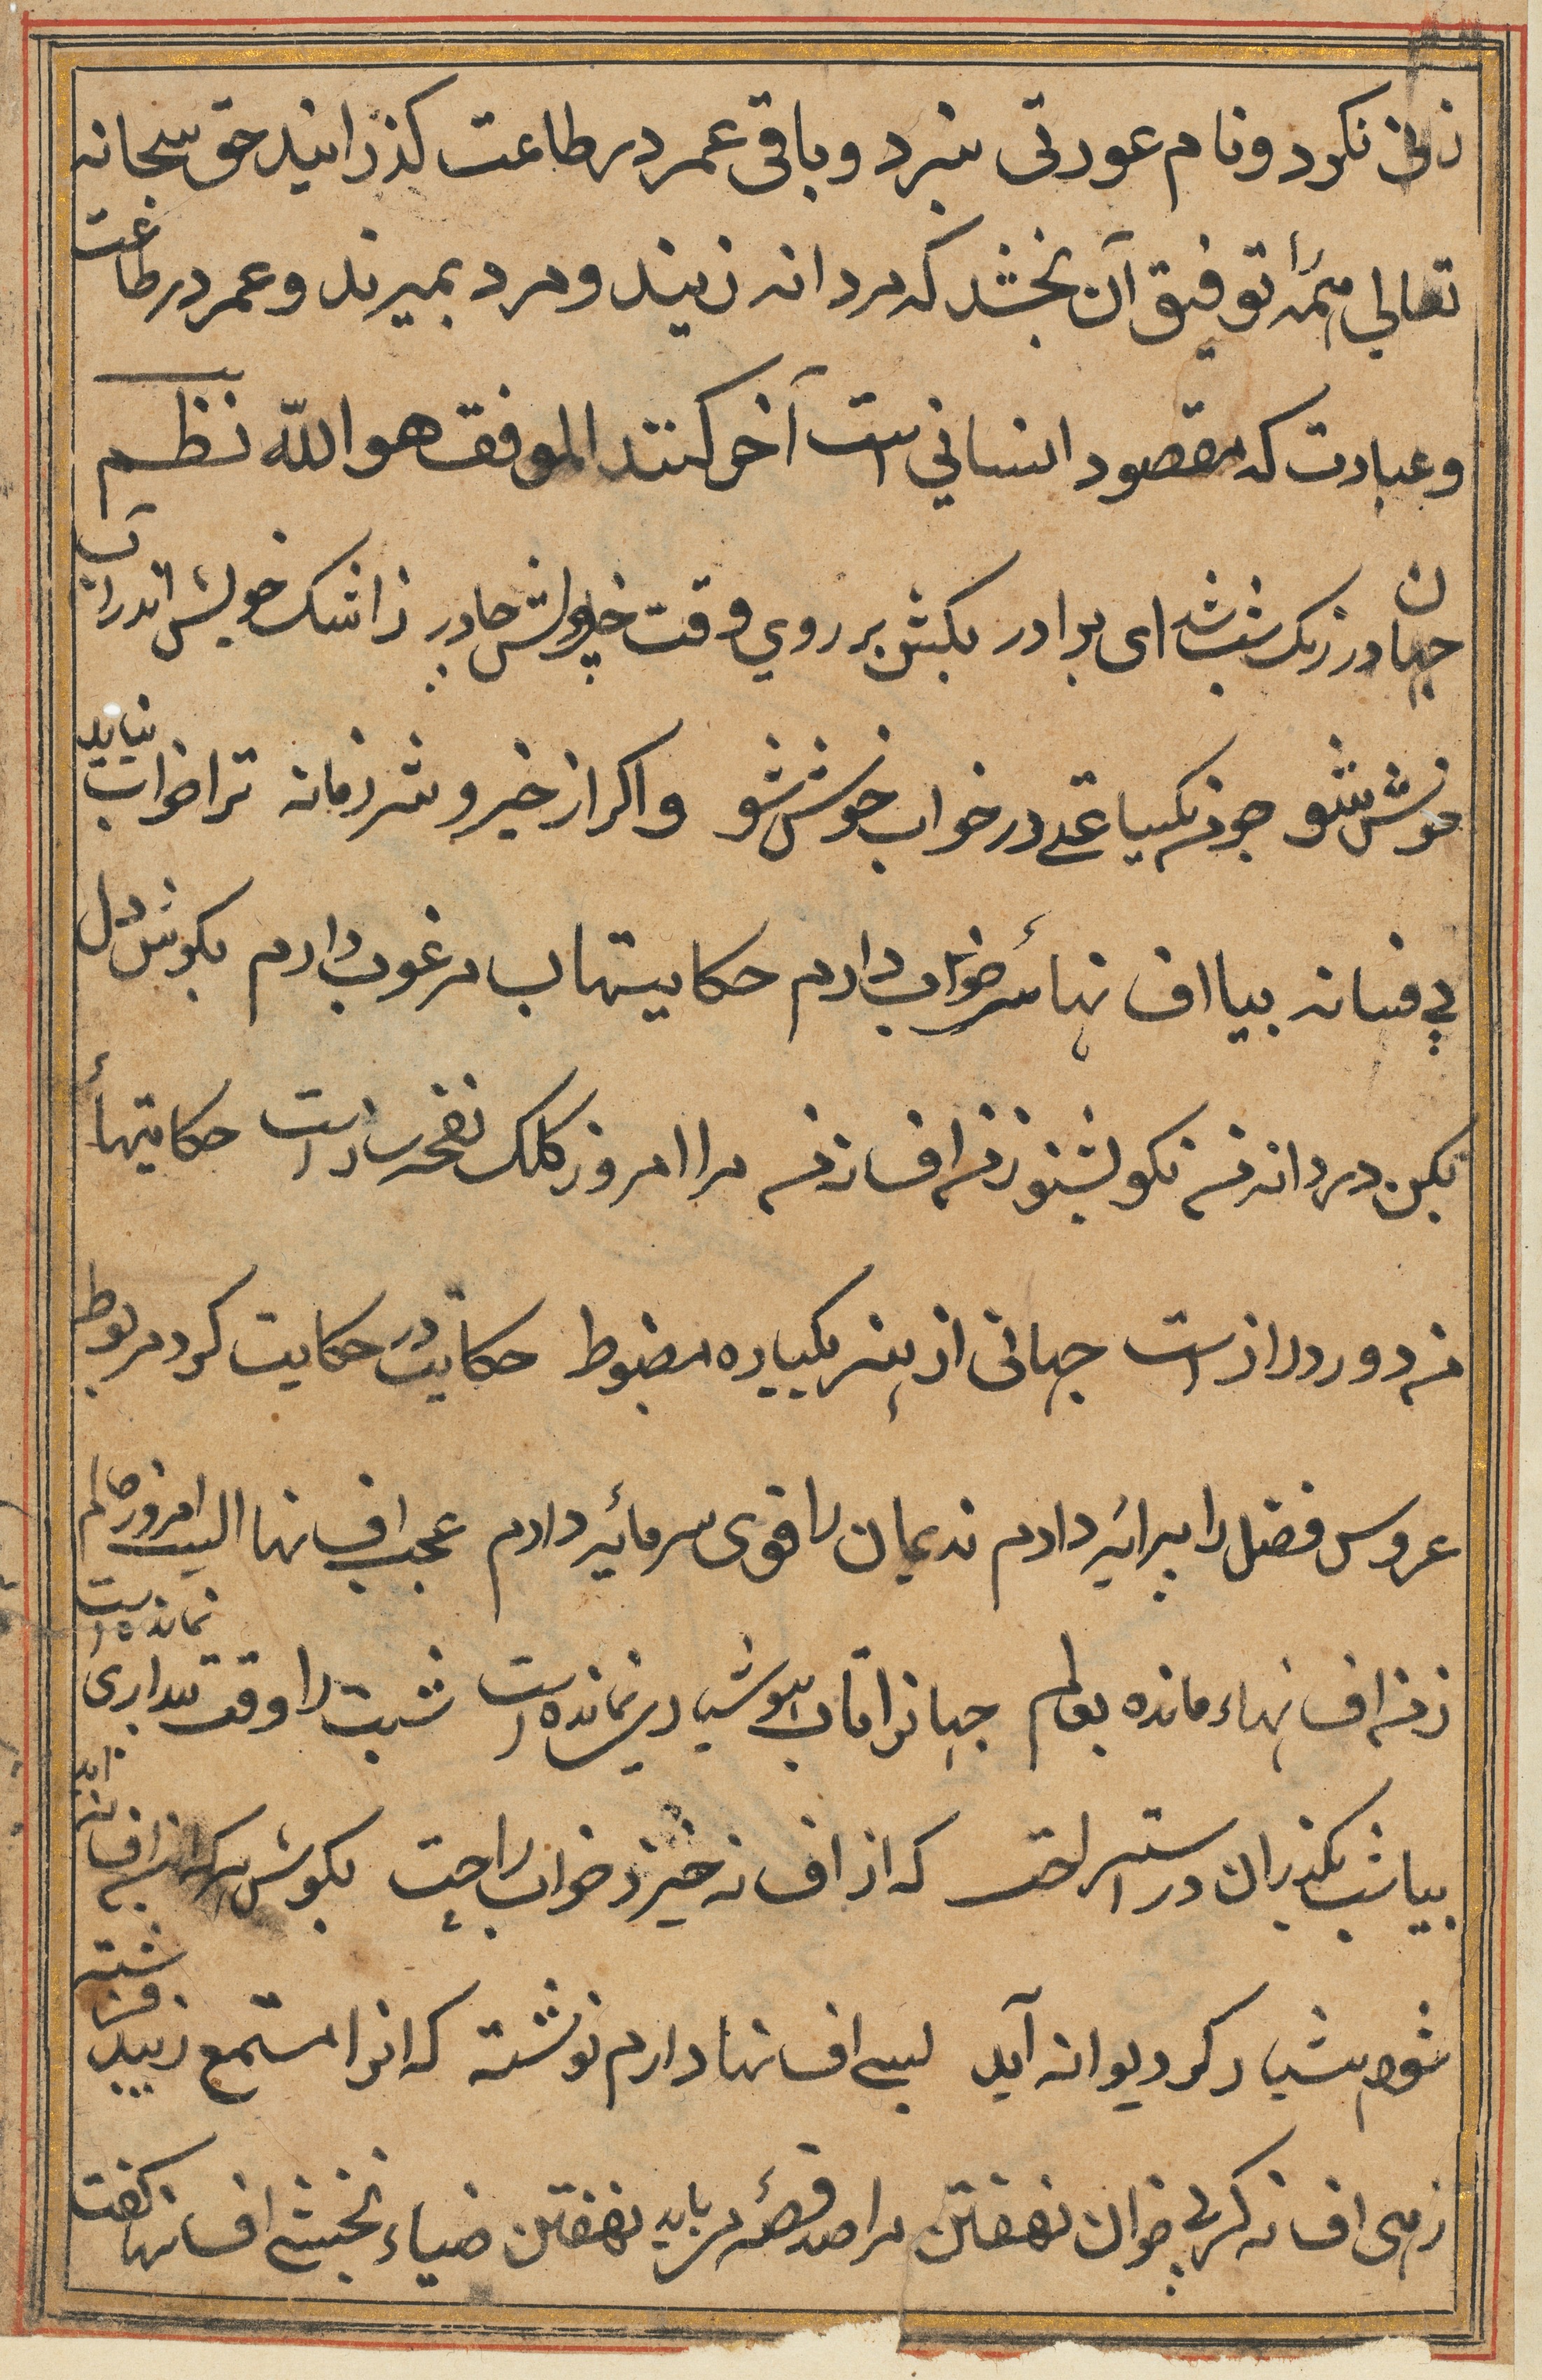 زنی نکرد و نام عورتی نبرد و باقی عمر در طاعت کذرانید حق سبحانه
تعالی همه را توفیق آن بخشد که مردانه زیند و مرد بمیرند و عمر در طاعت
و عبادت که مقصود انسانی است آخر کنند الموفق هو الله نظم
جهان در زنک شب شد ای برادر بکش بر روی وقت خویش چادر ز اشک خویش اندر آب
خوش شو چو من یکساعتی در خواب خوش شو و اکر از خیر و شر زمانه ترا خواب نیاید
بی فسانه بیا افسانهاء سرخواب دارم حکایتهاب مرغوب دارم بکوش دل
بکن دردانه من نکو بشنو ز من افسانه من مرا امروز کلک نغمه ساز است حکایتهاء
من دور دراز است جهانی از هنر یکباره مضبوط حکایت در حکایت کرد مربوط
عروس فضل را پیرایه دارم ندیمان را قوی سرمایه دارم عجب افسانها الیست امروز حالم
ز من افسانهاء مانده بعالم جهانرا تاب هوشیاری نمانده است شبت را وقت بیداری نمانده است
بیا شب بکذران در استراحت که از افسانه خیزد خواب راحت بکوش هرکه این افسانه اید
شود هشیار کر دیوانه آید بسی افسانها دارم نوشته که انرا مستمع زیبد فرشته
زهی افسانه کر بی خوان نهفتن مرا صد قصه مر باید نهفتن ضیاء نخشبی افسانها کفت